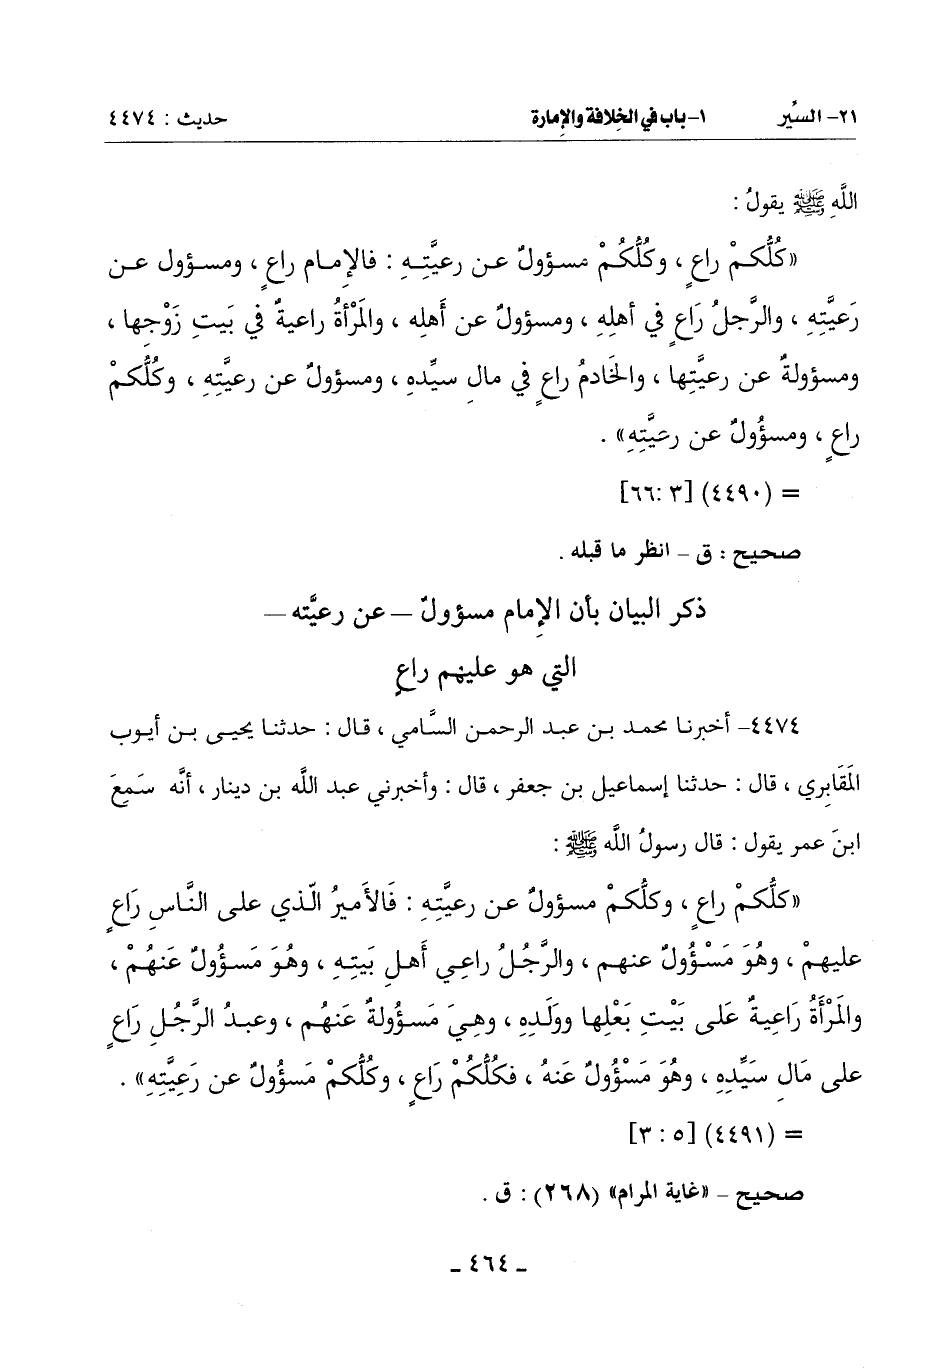 ٢١- السِّير ١- باب في الخلافة والإمارة حديث : ٤٤٧٤
اللَّهِ ﷺ يقولُ :
«كُلُّكمْ راعٍ ، وكُلُّكُمْ مسؤولٌ عن رعيَّتِهِ : فالإمام راعٍ ، ومسؤول عن
رَعيَّتِهِ ، والرَّجلُ رَاعٍ في أهلِهِ ، ومسؤولٌ عن أَهلِه ، والمَرْأةُ راعيةٌ في بَيتِ زَوْجِها ،
ومسؤولةٌ عن رعيَّتِها ، والخَادمُ راعٍ في مالِ سيِّدهِ ، ومسؤولٌ عن رعيَّتِهِ ، وكُلُّكمْ
راعٍ ، ومسؤُولٌ عن رعيَّتِهِ» .
= (٤٤٩٠) [٣ :٦٦]
صحيح : ق – انظر ما قبله .
ذكر البيان بأن الإمام مسؤولٌ – عن رعيَّته –
التي هو عليهم راعٍ
٤٤٧٤– أخبرنا محمد بن عبد الرحمن السَّامي ، قال : حدثنا يحيى بن أيوب
المَقَابِري ، قال : حدثنا إسماعيل بن جعفر ، قال : وأخبرني عبد اللَّه بن دينار ، أنَّه سَمِعَ
ابنَ عمر يقول : قال رسولُ اللَّه ﷺ :
«كلُّكمْ راعٍ ، وكلُّكمْ مسؤولٌ عن رعيَّتِهِ : فَالأَميرُ الّذي على النَّاسِ رَاعٍ
عليهمْ ، وهُوَ مَسْؤُولٌ عنهم ، والرَّجُلُ راعِي أَهلِ بَيتِهِ ، وهُوَ مَسؤُولٌ عَنهُمْ ،
والمَرْأَةُ رَاعِيةٌ عَلى بَيْتِ بَعْلِها وولَدِهِ ، وهِيَ مَسؤُولةٌ عَنهُم ، وعبدُ الرَّجُلِ رَاعٍ
على مَالِ سَيِّدِهِ ، وهُوَ مَسْؤُولٌ عَنهُ ، فكُلُّكُمْ رَاعٍ ، وكُلُّكمْ مَسؤُولٌ عن رَعِيَّتِهِ» .
= (٤٤٩١) [٥ : ٣]
صحيح – «غاية المرام» (٢٦٨) : ق .
- ٤٦٤ -